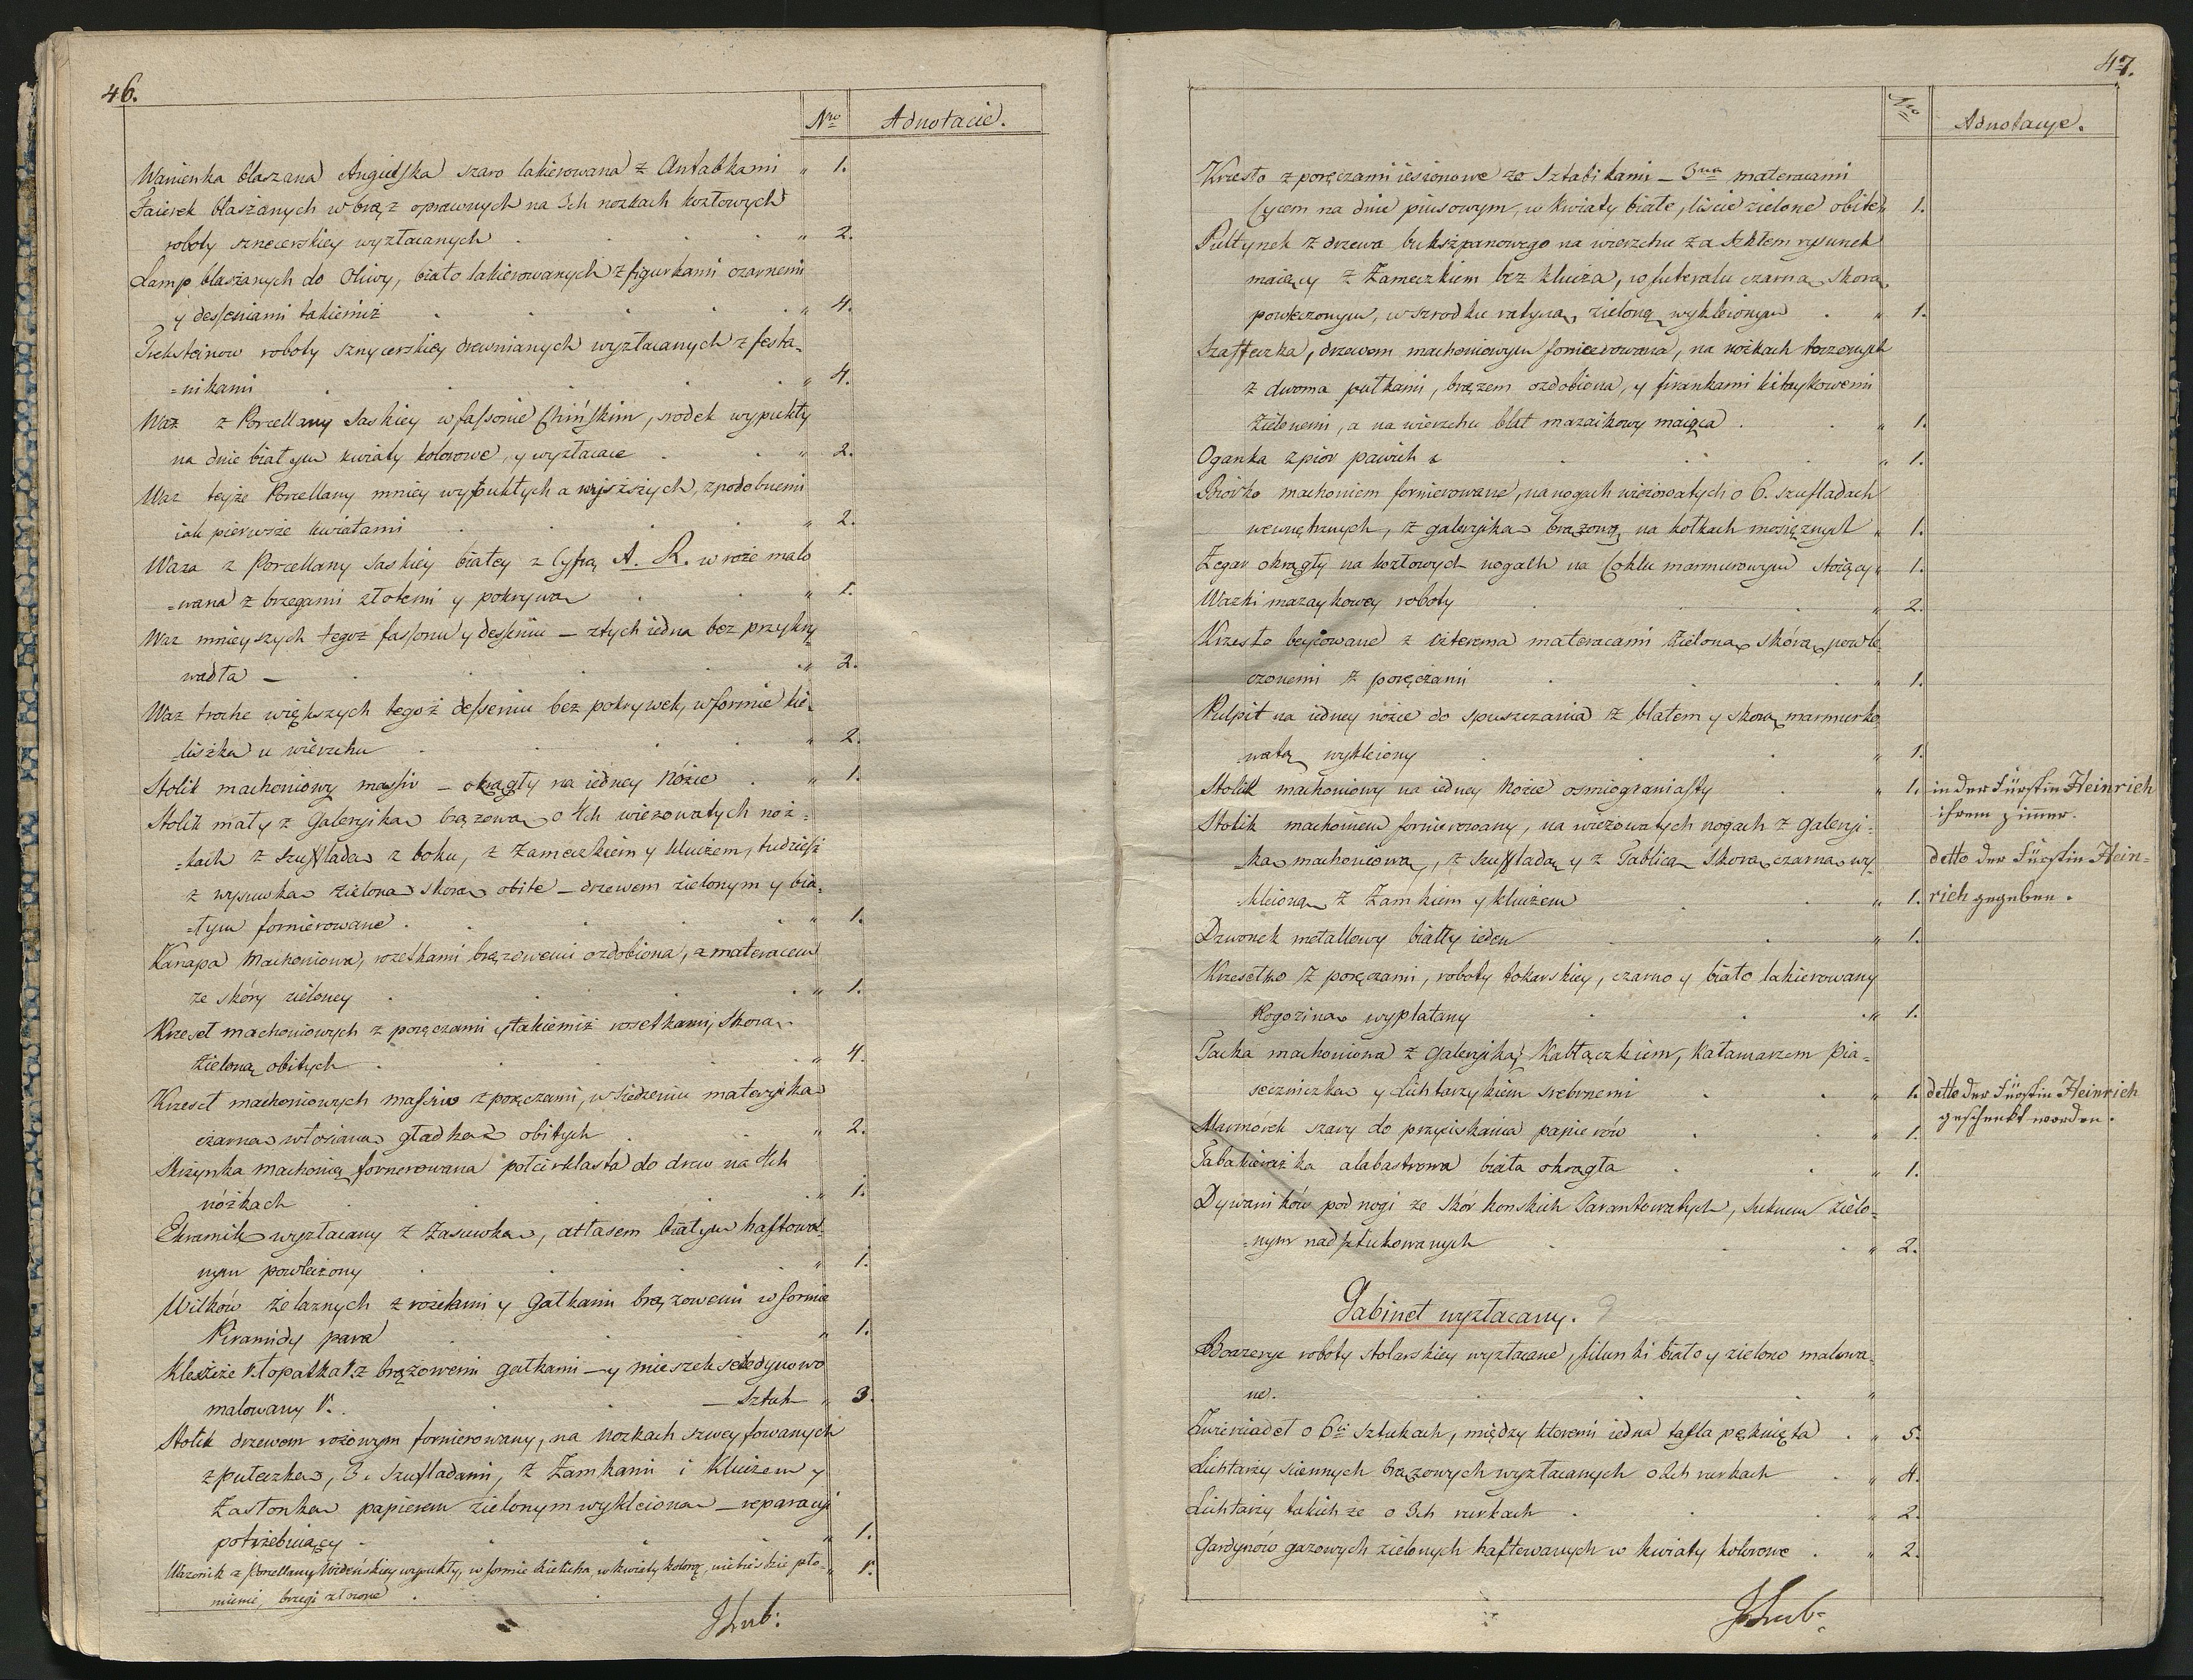 46.
Nro Adnotacie.
Wanienka blaszana Angielska szaro lakierowana z Antabkami " 1.
Faierek blaszanych w brąz oprawnych na 3ch nozkach kozłowych
roboty sznecerskiey wyzłacanych " 2.
Lamp blaszanych do Oliwy, biało lakierowanych z figurkami czarnemi
y desseniami takiemiż " 4.
roboty sznycerskiey drewnianych wyzłacanych z festo-
=nikami " 4.
Waz z Porcellany Saskiey w fassonie Chińskim, srodek wypukły
na dnie białym kwiaty kolorowe, y wyzłacane " 2.
Waz teyże Porcellany mniey wypukłych a wyższych, z podobnemi
iak pierwsze kwiatami " 2.
Waza z Porcellany Saskiey białey z Cyfrą A. R. w roże malo
=wana z brzegami złotemi y pokrywą " 1.
Waz mnieyszych tegoz fassonu y desseniu – z tych iedna bez przykry
wadła – " 2.
Waz troche większych tegoż desseniu bez pokrywek, w formie kie-
liszka u wierzchu " 2.
Stolik machoniowy massiv – okrągły na iedney Nóżce " 1.
Stolik mały z Galeryiką brązową o 4ch wieżowatych noż=
=kach z szufladą z boku, z Zameczkiem y kluczem, tudzież
z wysuwką zieloną skorą obite – drzewem zielonym y bia=
=łym fornierowane. " 1.
Kanapa Machoniowa, rozetkami brązowemi ozdobiona, z materacem
ze skóry zieloney " 1.
Krzeseł machoniowych z poręczami y takiemiż rosetkami, Skorą
Zieloną obitych " 4.
Krzeseł machoniowych massiw z poręczami, w siedzeniu materyiką
czarną włosianą gładką obitych " 2.
Skrzynka machonią fornerowana połcirklasta do drew na 4ch
nóżkach " 1.
Ekranik wyzłacany z Zasuwką, atłasem białym haftowa=
nym powleczony " 1.
Wilków żelaznych z rozetkami y Gałkami brązowemi w formie
Piramidy para " 1.
Kleszcze 1. łopatka 1. z brązowemi gałkami – y mieszek seledynowo
malowany 1. – Sztuk " 3.
Stolik drzewem rożowym fornierowany, na Nozkach szweyfowanych
z puteczką, 3. szufladami, z Zamkami i Kluczem y
Zasłonką papierem zielonym wykleioną – reparacyi
potrzebuiący " 1.
Wazonik z Porcellany Wideńskiey wypukły, w formie kielicha, w kwiaty kolorą, niebieskie pło- " 1.
mienie, brzegi złocone
JLub:
47.
Nro Adnotacye.
Krzesło z poręczami iesionowe ze Sztabikami – 3ma materacami
Cycem na dnie piusowym, w kwiaty białe, liście zielone obite " 1.
Pultynek z drzewa bukszpanowego na wierzchu za Szkłem rysunek
maiący z Zameczkiem bez klucza, w futeralu czarną skorą
powleczonym, w szrodku ratyną zieloną wykleionym " 1.
Szaffeczka, drzewem machoniowym fornierowana, na nóżkach toczonych
z dwoma pułkami, brązem ozdobiona, y firankami kitaykowemi
Zielonemi, a na wierzchu blat mazaikowy maiąca " 1.
Oganka z piór pawich " 1.
Biórko machoniem fornierowane, na nogach wieżowatych o 6. szufladach
wewnętrznych, z galeryiką brązową na kółkach mosiężnych " 1.
Zegar okrągły na kozłowych nogach na Coklu marmurowym stoiący " 1.
Wazki mazaykowey roboty " 2.
Krzesło beycowane z czterema materacami zieloną skórą powle
czonemi z poręczami " 1.
Pulpit na iedney nóżce do spuszczania z blatem y skorą marmurko
watą wykleiony " 1.
Stolik machoniowy na iedney Nożce osmiograniasty " 1. in der Fürstin Heinrich
ihrem zimmer.
Stolik machoniem fornierowany, na wieżowatych nogach z Galeryi=
ką machoniową, z Szufladą y z Tablicą Skorą czarną wy= detto der Fürstin Hein=
kleioną z Zamkiem y kluczem " 1. rich gegeben.
Dzwonek metallowy biały ieden " 1.
Krzesełko z poręczami, roboty tokarskiey, czarno y biało lakierowany
Rogoziną wyplatany " 1.
Tacka machoniowa z Galeryiką, Kabłączkiem, Kałamarzem Pia=
seczniczką y Lichtarzykiem srebrnemi " 1. detto der Fürstin Heinrich
geschenkt worden.
Marmórek szary do przyciskania papierów " 1.
Tabakierażka alabastrowa biała okrągła " 1.
Dywaników pod nogi ze Skór konskich Tarantowatych, suknem zielo=
=nym nadsztukowanych " 2.
Gabinet wyzłacany.
Boazerye roboty stolarskiey wyzłacane, filunki biało y zielono malowa=
ne. "
Zwierciadeł o 6ci sztukach, między ktoremi iedna tafla pęknięta " 5.
Lichtarzy sciennych brązowych wyzłacanych o 2ch rurkach " 4.
Lichtarzy takich że o 3ch rurkach " 2.
Gardynów gazowych zielonych haftowanych w kwiaty kolorowe " 2.
JLub: